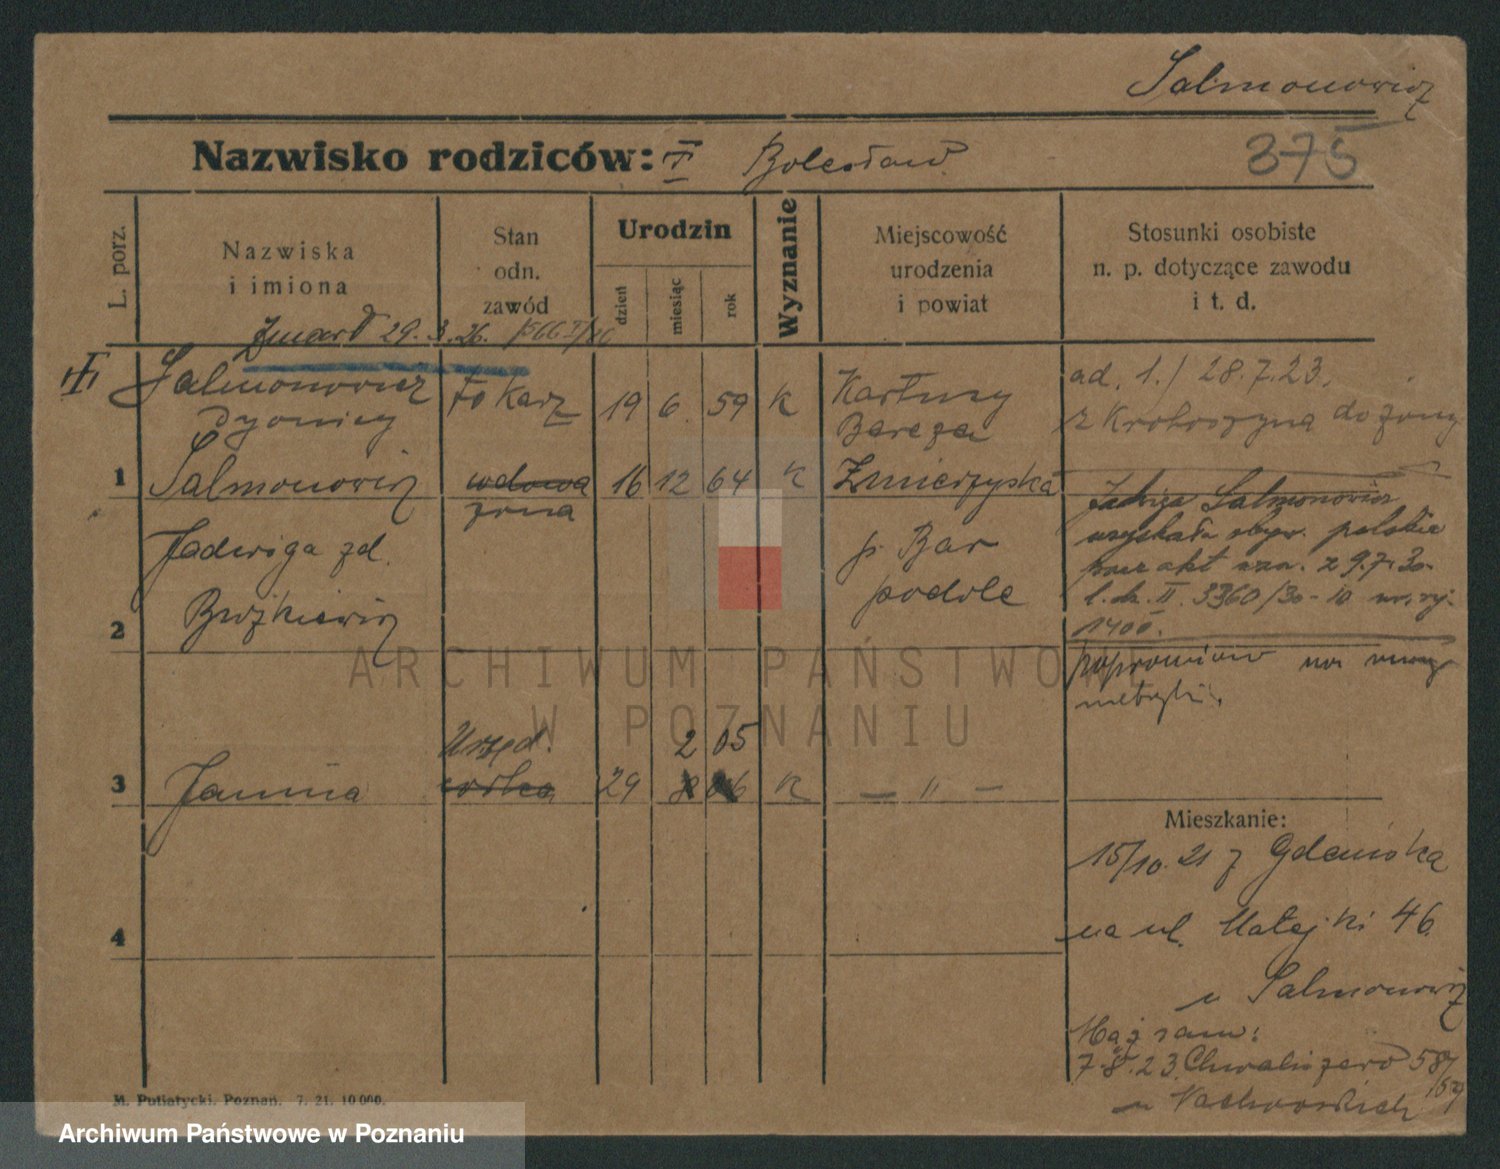 Salmonowicz
Nazwisko rodziców: Bolesław
375
L. porz.
Nazwiska
i imiona
Stan
odn.
zawód
Urodzin
dzień
miesiąc
rok
Wyznanie
Miejscowość
urodzenia
i powiat
Stosunki osobiste
n. p. dotyczące zawodu
i t. d.
Zmarł 29.3.26.
Salmonowicz tokarz 19 6 59 k Kartuzy
Dyonizy Bereza
ad. 1./ 28.7.23.
z Krotoszyna do żony
1 Salmonowicz wdowa 16 12 64 k Zmierzyska
żona
Jadwiga zd. p. Bar
Brożkiewicz podole
Jadwiga Salmonowicz
uzyskała obyw. polskie
z 9.7.30.
l.dz. II. 3360/30-10
1400.
2
poprawiono na
metryki.
Urzęd. 2 05
3 Janina córka 29 8 06 k — " —
4
Mieszkanie:
15/10.21 z Gdańska
na ul. Matejki 46
u Salmonowicz
Mąż sam:
7.8.23. Chwaliszewo 58/59
u
M. Putiatycki. Poznań. 7. 21. 10 000.
ARCHIWUM PAŃSTWOWE
W POZNANIU
Archiwum Państwowe w Poznaniu